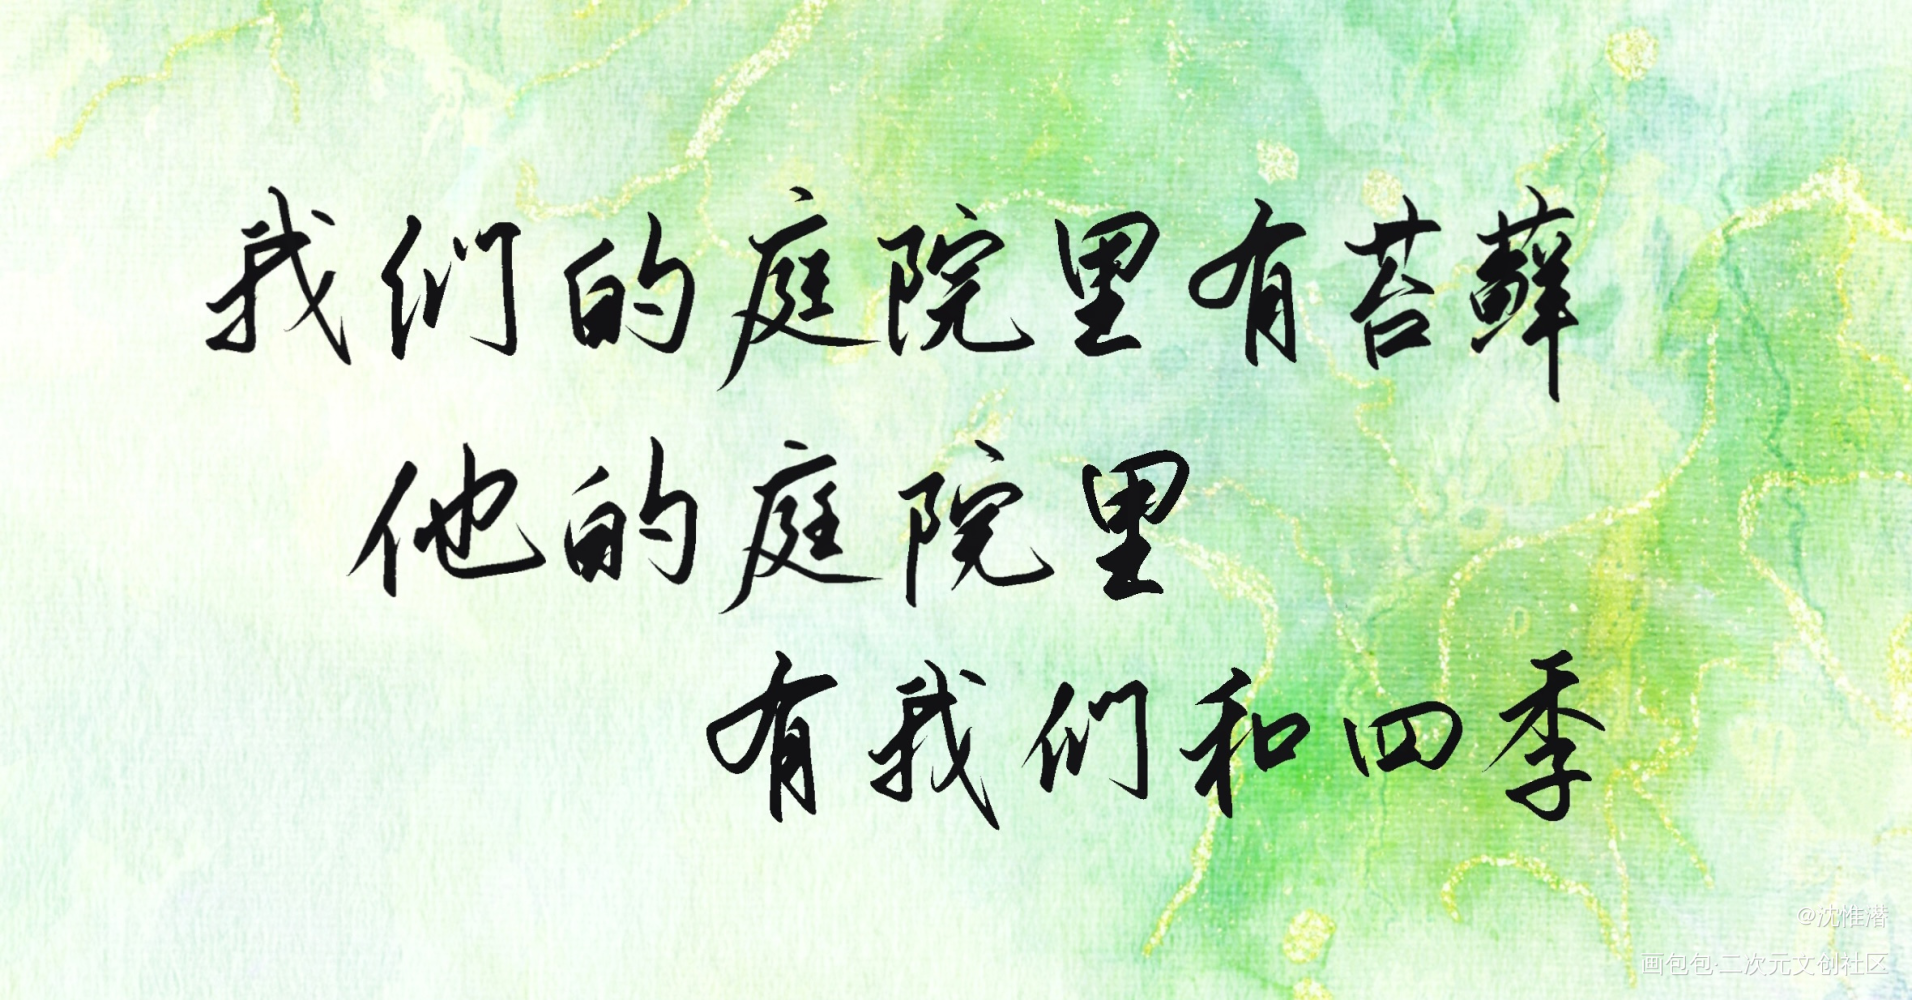 我们的庭院里有苔藓
他的庭院里
有我们和四季
@沈惟潜
画包包·二次元文创社区